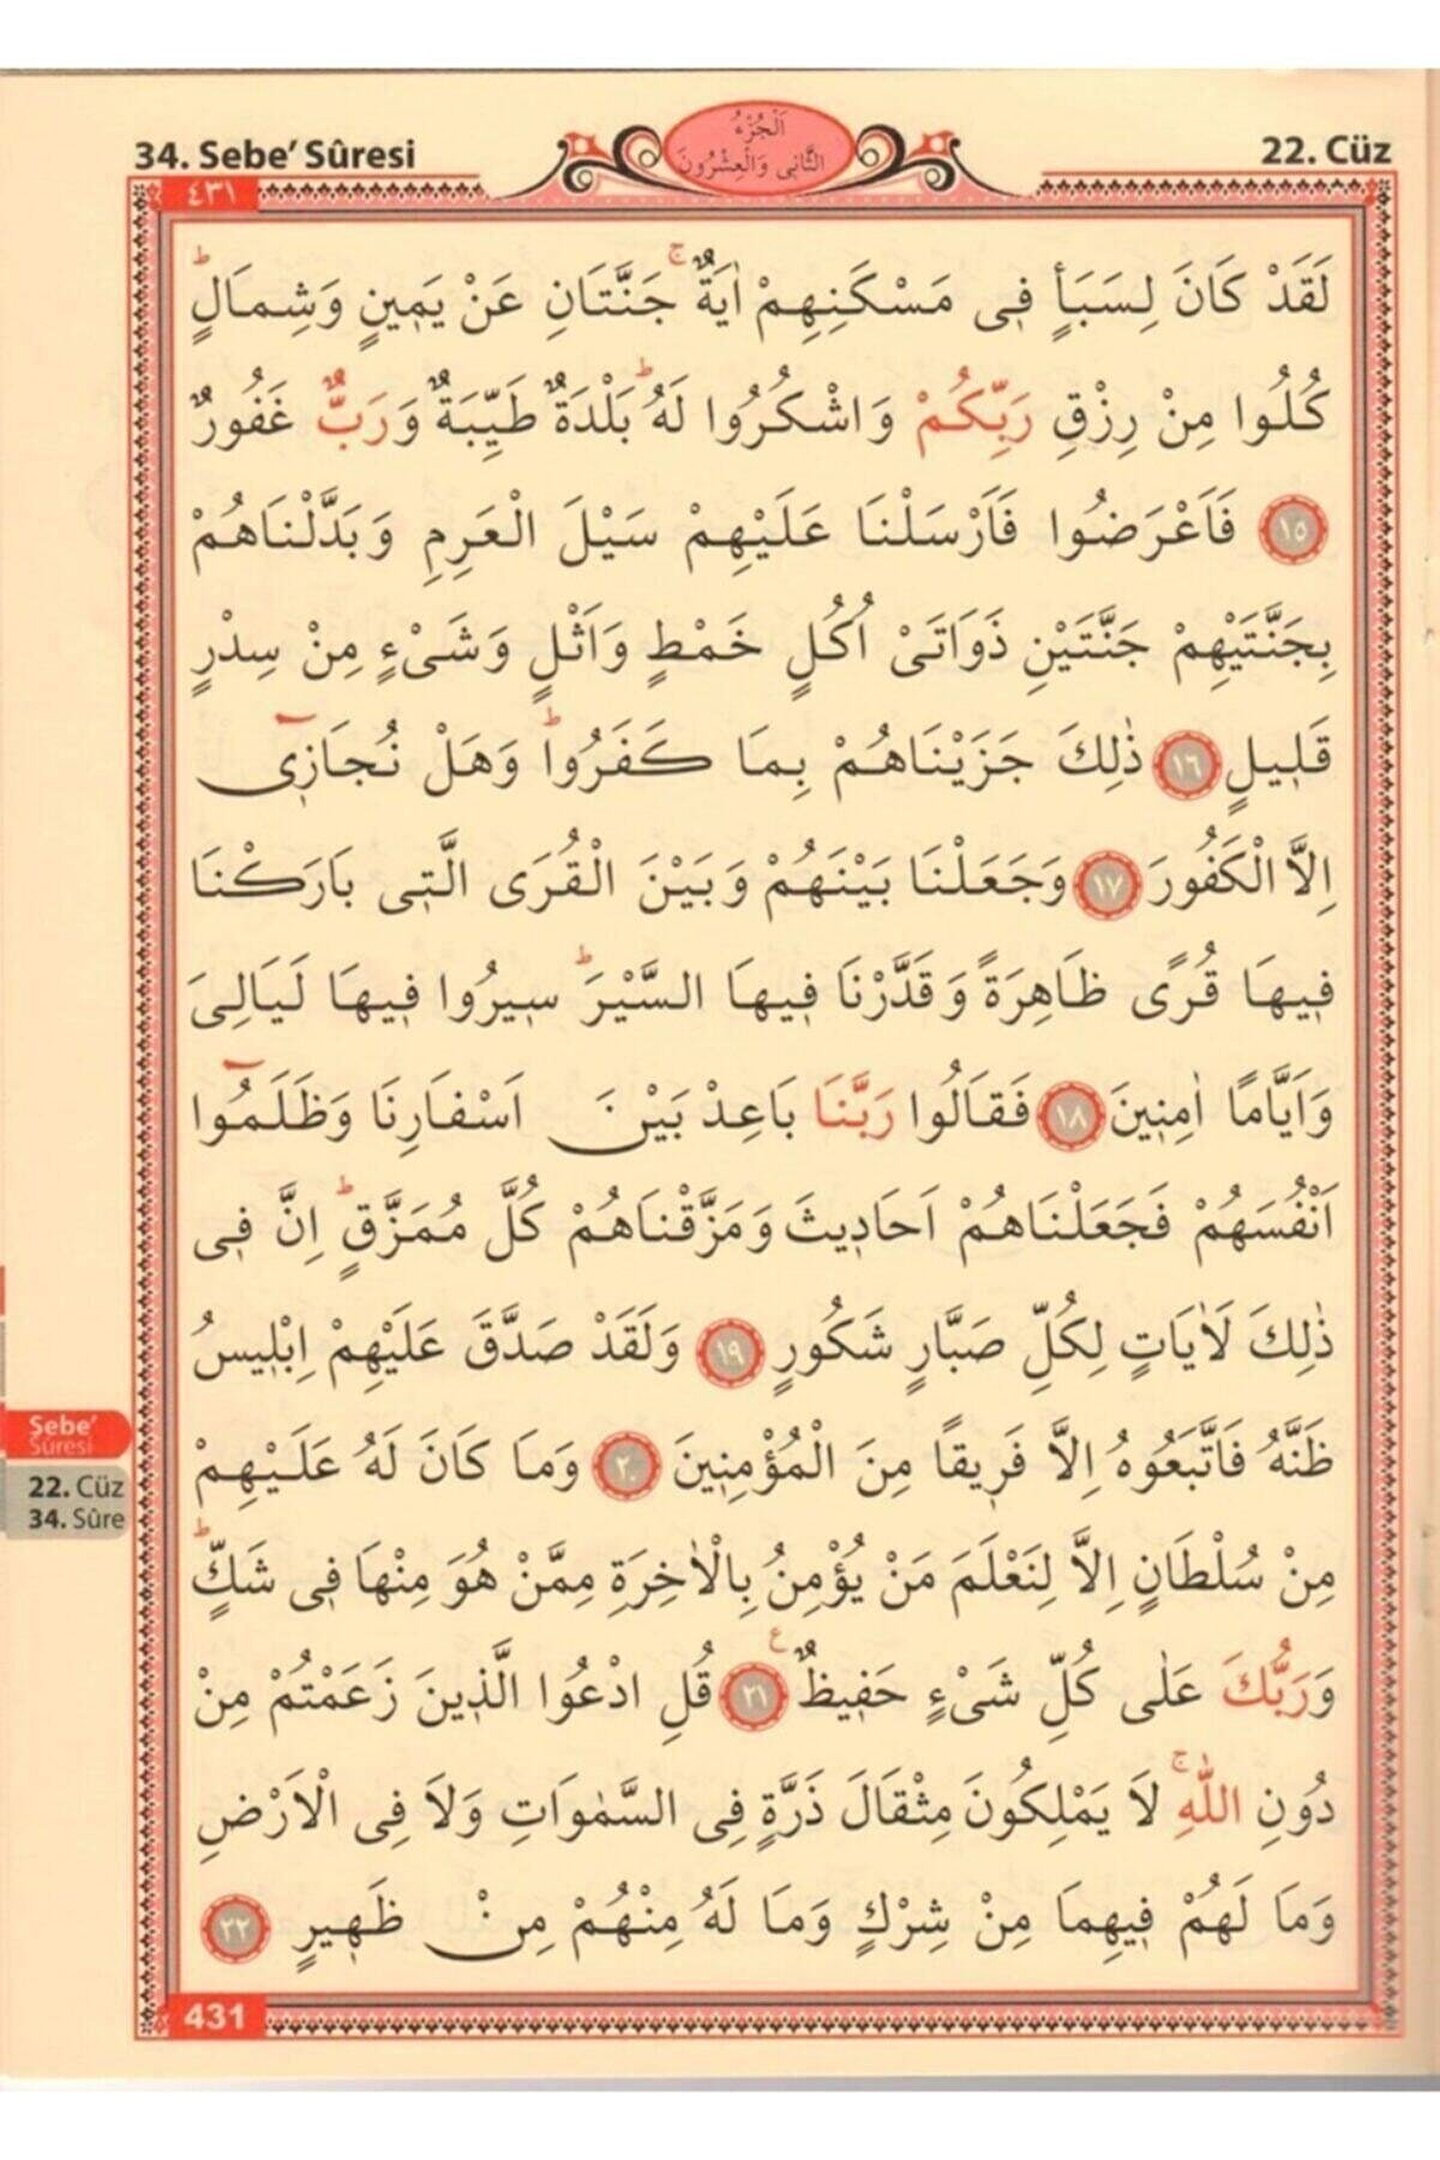 34. Sebe' Sûresi
اَلْجُزْءُ
الثَّانِى وَالْعِشْرُونَ
22. Cüz
٤٣١
لَقَدْ كَانَ لِسَبَأٍ فِى مَسْكَنِهِمْ اٰيَةٌۚ جَنَّتَانِ عَنْ يَمِينٍ وَشِمَالٍۜ
كُلُوا مِنْ رِزْقِ رَبِّكُمْ وَاشْكُرُوا لَهُۜ بَلْدَةٌ طَيِّبَةٌ وَرَبٌّ غَفُورٌ
١٥ فَاَعْرَضُوا فَاَرْسَلْنَا عَلَيْهِمْ سَيْلَ الْعَرِمِ وَبَدَّلْنَاهُمْ
بِجَنَّتَيْهِمْ جَنَّتَيْنِ ذَوَاتَىْ اُكُلٍ خَمْطٍ وَاَثْلٍ وَشَىْءٍ مِنْ سِدْرٍ
قَلِيلٍ ١٦ ذٰلِكَ جَزَيْنَاهُمْ بِمَا كَفَرُواۜ وَهَلْ نُجَازِىٓ
اِلَّا الْكَفُورَ ١٧ وَجَعَلْنَا بَيْنَهُمْ وَبَيْنَ الْقُرَى الَّتِى بَارَكْنَا
فِيهَا قُرًى ظَاهِرَةً وَقَدَّرْنَا فِيهَا السَّيْرَۜ سِيرُوا فِيهَا لَيَالِىَ
وَاَيَّامًا اٰمِنِينَ ١٨ فَقَالُوا رَبَّنَا بَاعِدْ بَيْنَ اَسْفَارِنَا وَظَلَمُٓوا
اَنْفُسَهُمْ فَجَعَلْنَاهُمْ اَحَادِيثَ وَمَزَّقْنَاهُمْ كُلَّ مُمَزَّقٍۜ اِنَّ فِى
ذٰلِكَ لَاٰيَاتٍ لِكُلِّ صَبَّارٍ شَكُورٍ ١٩ وَلَقَدْ صَدَّقَ عَلَيْهِمْ اِبْلِيسُ
ظَنَّهُ فَاتَّبَعُوهُ اِلَّا فَرِيقًا مِنَ الْمُؤْمِنِينَ ٢٠ وَمَا كَانَ لَهُ عَلَيْهِمْ
مِنْ سُلْطَانٍ اِلَّا لِنَعْلَمَ مَنْ يُؤْمِنُ بِالْاٰخِرَةِ مِمَّنْ هُوَ مِنْهَا فِى شَكٍّۜ
وَرَبُّكَ عَلٰى كُلِّ شَىْءٍ حَفِيظٌ ع ٢١ قُلِ ادْعُوا الَّذِينَ زَعَمْتُمْ مِنْ
دُونِ اللّٰهِۚ لَا يَمْلِكُونَ مِثْقَالَ ذَرَّةٍ فِى السَّمٰوَاتِ وَلَا فِى الْاَرْضِ
وَمَا لَهُمْ فِيهِمَا مِنْ شِرْكٍ وَمَا لَهُ مِنْهُمْ مِنْ ظَهِيرٍ ٢٢
Sebe'
Sûresi
22. Cüz
34. Sûre
431